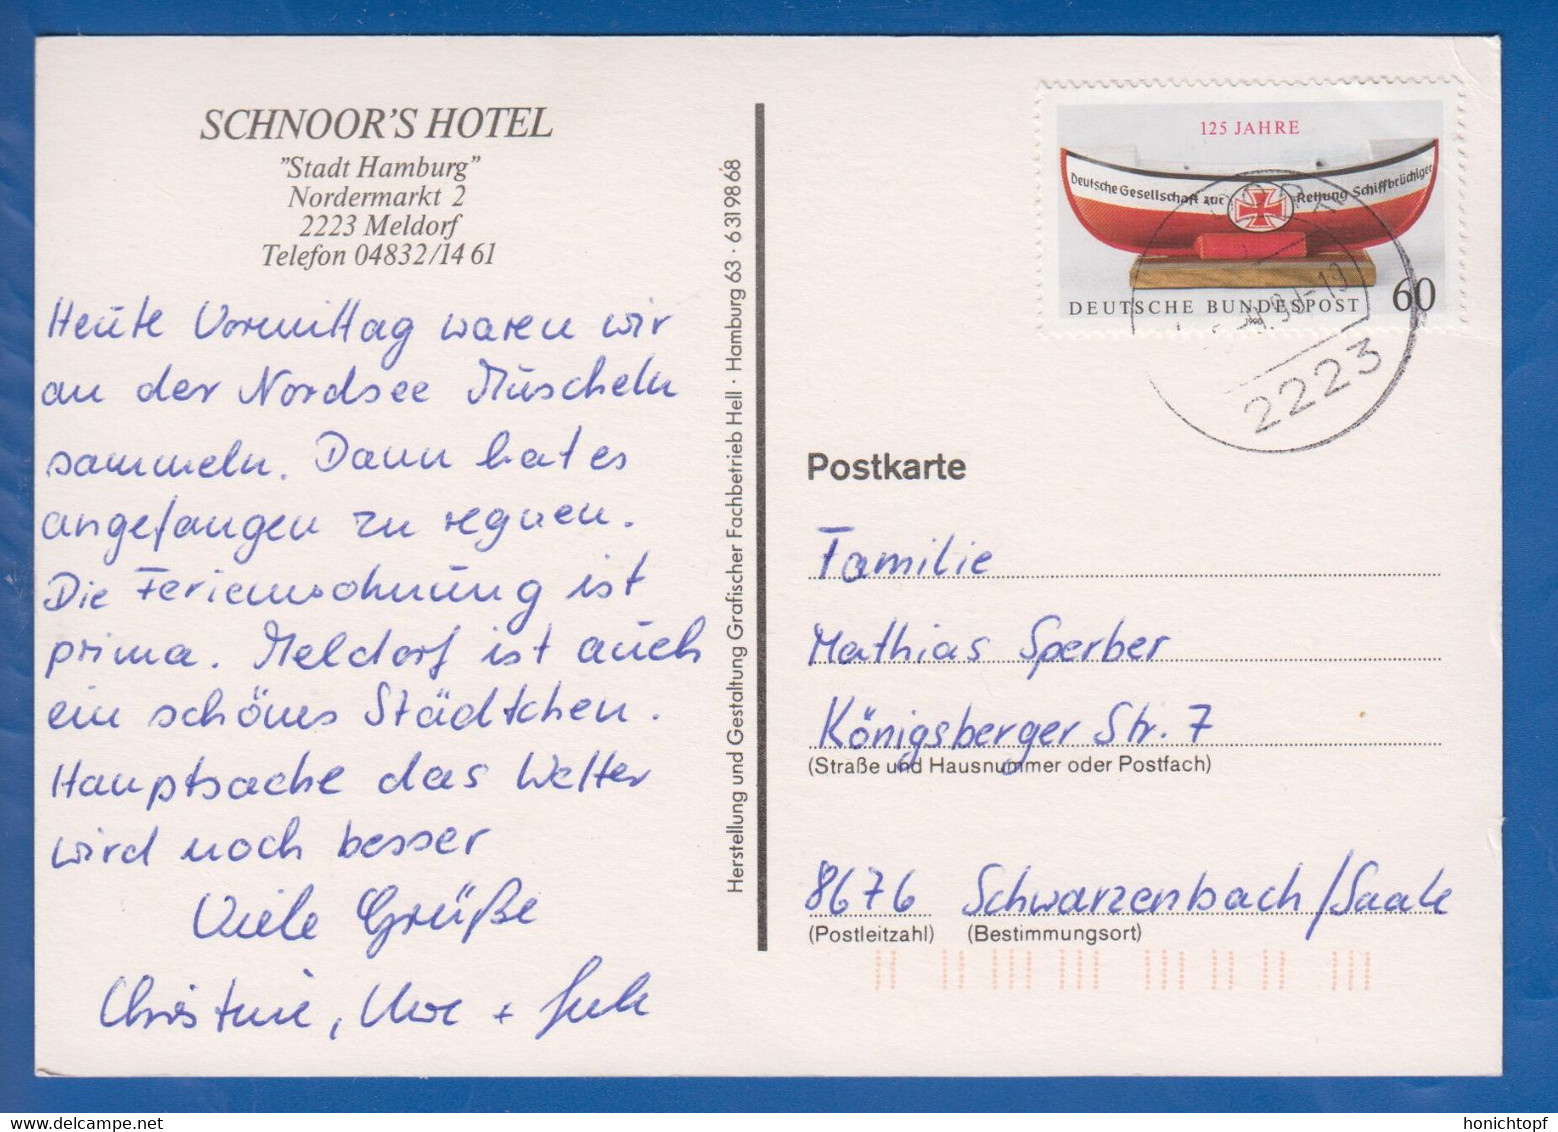 SCHNOOR'S HOTEL
"Stadt Hamburg"
Nordermarkt 2
2223 Meldorf
Telefon 04832/14 61
Heute Vormittag waren wir
an der Nordsee Muscheln
sammeln. Dann hat es
angefangen zu regnen.
Die Ferienwohnung ist
prima. Meldorf ist auch
ein schönes Städtchen.
Hauptsache das Wetter
wird noch besser
Viele Grüße
Christine, Uwe +
Herstellung und Gestaltung Grafischer Fachbetrieb Hell · Hamburg 63 · 6 31 98 68
125 JAHRE
Deutsche Gesellschaft zur Rettung Schiffbrüchiger
DEUTSCHE BUNDESPOST 60
2223
Postkarte
Familie
Mathias Sperber
Königsberger Str. 7
(Straße und Hausnummer oder Postfach)
8676 Schwarzenbach/Saale
(Postleitzahl) (Bestimmungsort)
honichtopf